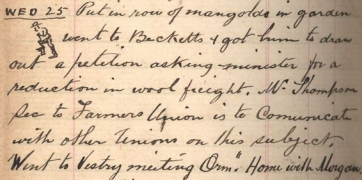 WED 25 Put in row of mangolds in garden
went to Becketts & got him to draw
out a petition asking minister for a
reduction in wool freight. Mr Thompson
Sec to Farmers Union is to Comunicate
with other Unions on this subject.
Went to Vestry meeting Home with Morgan